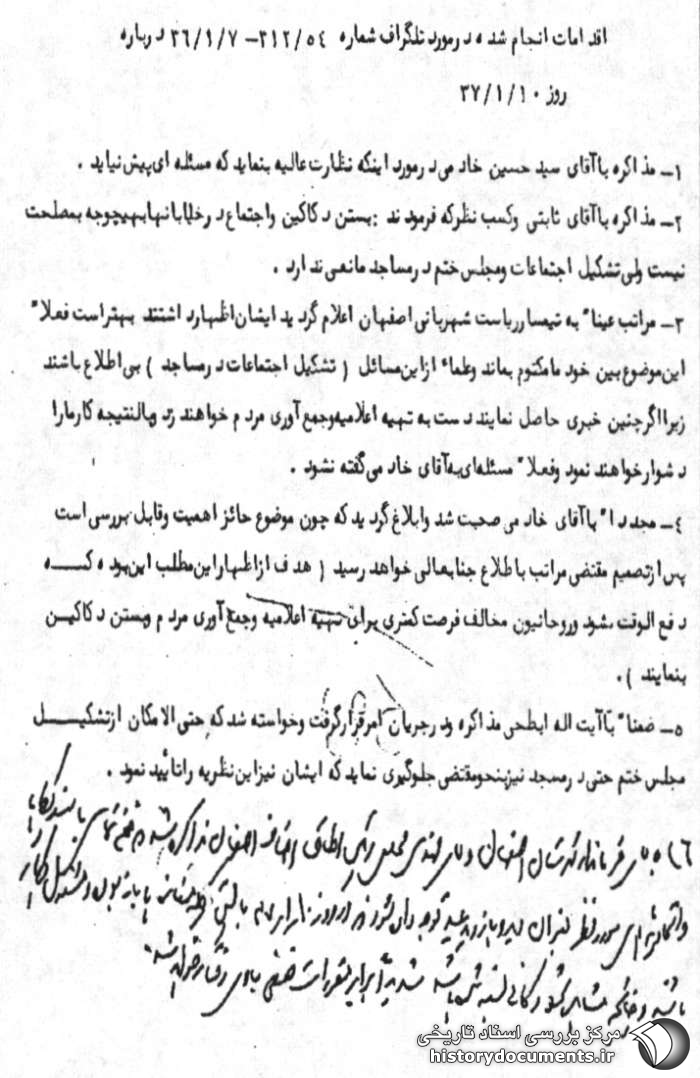 اقدامات انجام شده درمورد تلگراف شماره ۳۱۲/۵۴- ۳۶/۱/۷ درباره
روز ۳۷/۱/۱۰
۱- مذاکره باآقای سید حسین خادمی درمورد اینکه نظارت عالیه بنماید که مسئله ای پیش نیاید .
۲- مذاکره باآقای ثابتی وکسب نظرکه فرمودند : بستن دکاکین واجتماع درخیابانهابهیچوجه بمصلحت
نیست ولی تشکیل اجتماعات ومجلس ختم درمساجد مانعی ندارد .
۳- مراتب عینا" به تیمسارریاست شهربانی اصفهان اعلام گردید ایشان اظهارداشتند بهتراست فعلا"
این موضوع بین خود مامکتوم بماند وعلما" ازاین مسائل ( تشکیل اجتماعات درمساجد ) بی اطلاع باشند
زیرااگرچنین خبری حاصل نمایند دست به تهیه اعلامیه وجمع آوری مردم خواهند زد وبالنتیجه کارمارا
دشوارخواهند نمود وفعلا" مسئله ای به آقای خادمی گفته نشود .
۴- مجددا" باآقای خادمی صحبت شد وابلاغ گردید که چون موضوع حائز اهمیت وقابل بررسی است
پس ازتصمیم مقتضی مراتب باطلاع جنابعالی خواهد رسید ( هدف ازاظهاراین مطلب این بوده کـــه
دفع الوقت بشود وروحانیون مخالف فرصت کمتری برای تهیه اعلامیه وجمع آوری مردم وبستن دکاکیـن
بنمایند ) .
۵- ضمنا" باآیت اله ابطحی مذاکره ودرجریان امرقرارگرفت وخواسته شد که حتی الامکان ازتشکیــــل
مجلس ختم حتی درمسجد نیزبنحومقتضی جلوگیری نماید که ایشان نیزاین نظریه راتایید نمود .
۶- با فرماندار شهرستان اصفهان و رئیس اطاق اصناف اصفهان مذاکره شد
توجه داده شود در روز ۱۰
باشند
مرکز بررسی اسناد تاریخی
historydocuments.ir